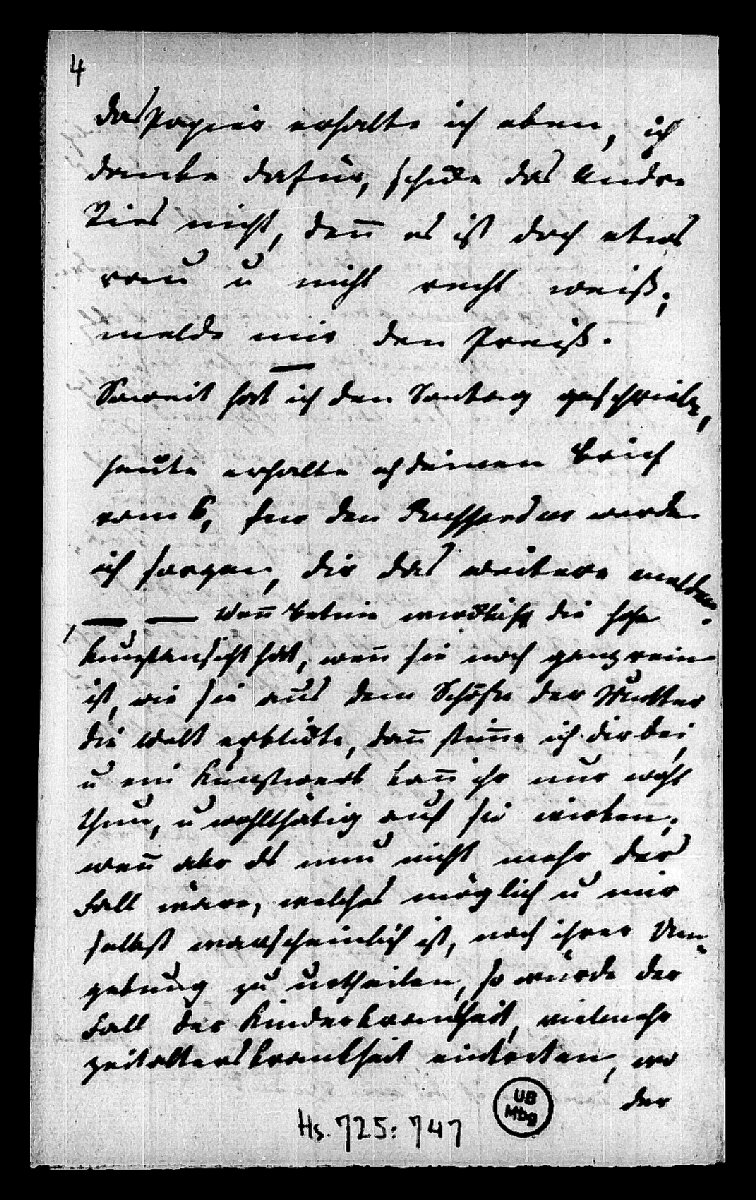 4
das Papier erhalte ich eben, ich
danke dafür, schicke das Andre
Ries nicht, den̅ es ist doch etwas
rau u nicht recht weiß;
melde mir den Preiß.
Soweit hat ich den Sontag geschrieben,
heute erhalte ich deinen Brief
vom 6, für den wurde
ich sorgen, dir das weitere melden.
— — Wen̅ Bettine wirklich die hohe
Kunstansicht hat, wen̅ sie noch ganz rein
ist, wie sie aus dem Schoße der Mutter
die Welt erblickte, dan̅ stim̅e ich dir bei,
u ein Kunstwerk kan̅ ihr nur wohl
thun, u wohlthätig auf sie wirken;
wen̅ aber es nun nicht mehr der
Fall wäre, welches möglich u mir
selbst warscheinlich ist, nach ihrer Um=
gebung zu urtheilen, so würde der
Fall der Kinderkrankheit, vielmehr
zeitalterskrankheit eintreten, wo
der
UB
Mbg
Hs. 725: 747